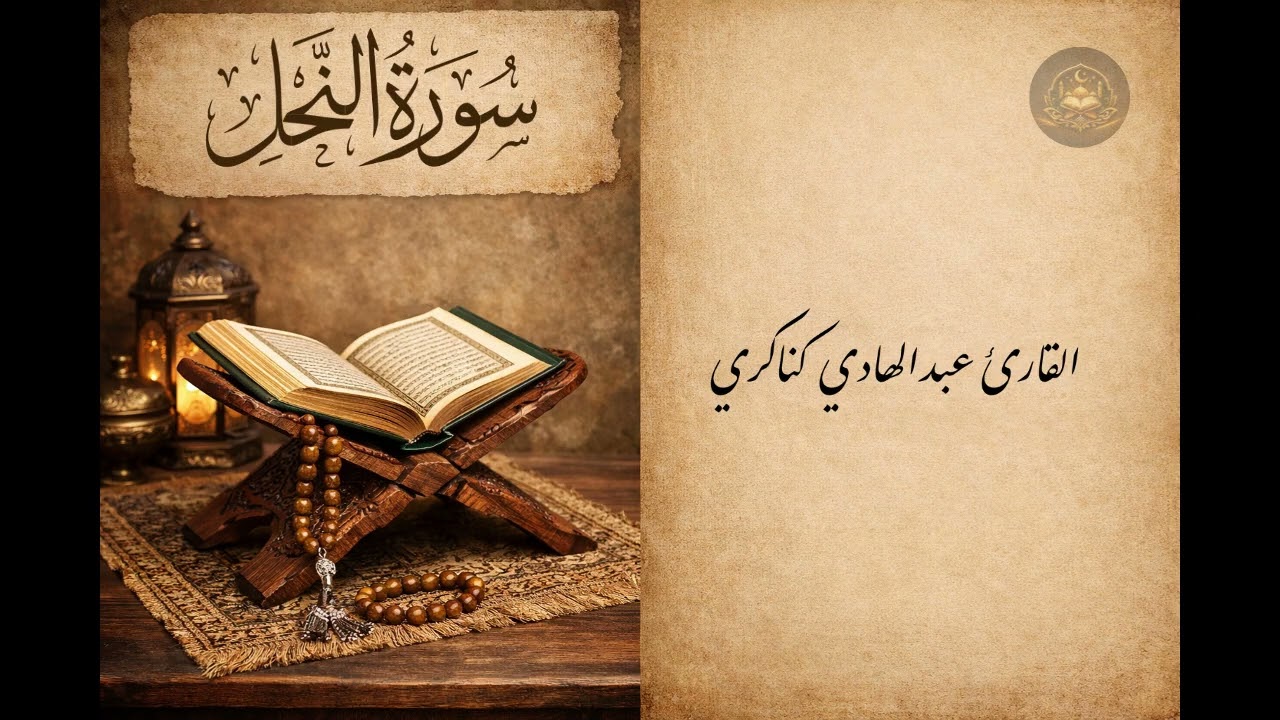 سُورَةُ النَّحْلِ
القارئ عبد الهادي كناكري